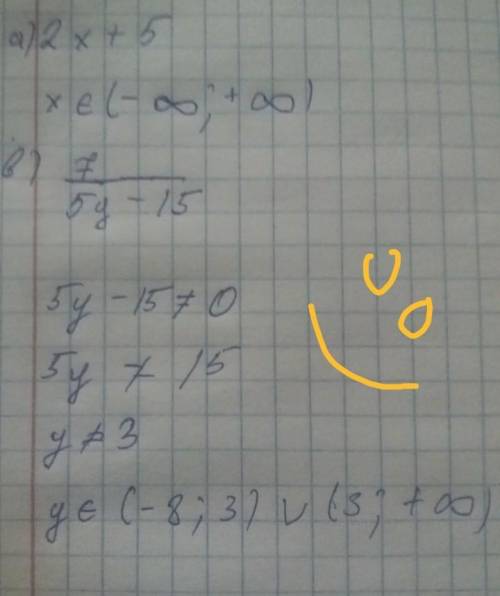 а) 2x + 5
x ∈ (- ∞; + ∞)
в) 7
5y - 15
5y - 15 ≠ 0
5y ≠ 15
y ≠ 3
y ∈ (-8; 3) ∪ (3; +∞)